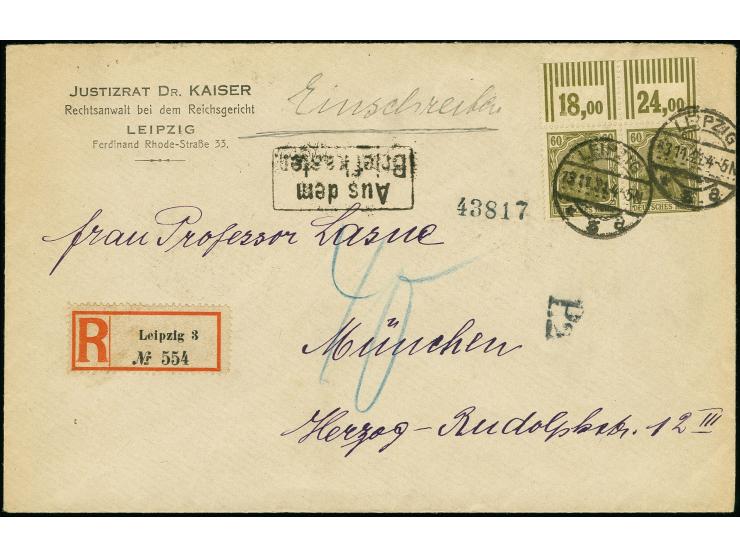 JUSTIZRAT DR. KAISER
Rechtsanwalt bei dem Reichsgericht
LEIPZIG
Ferdinand Rhode-Straße 33.
Einschreiben
18,00 24,00
60 60
DEUTSCHES
LEIPZIG
4-5N
* 3 a
LEIPZIG
4-5N
a
Aus dem
Briefkasten
43817
Frau Professor Lasne
40
R
Leipzig 3
№ 554
München
Herzog-Rudolphstr. 12 III